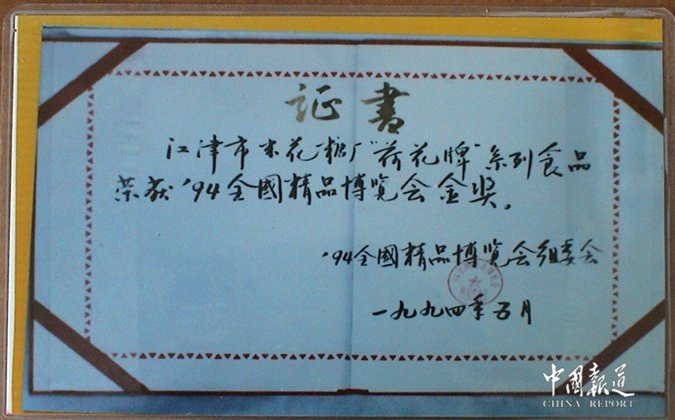 证書
江津市米花糖厂"荷花牌"系列食品
荣获'94全國精品博览会金奖。
'94全國精品博览会组委会
一九九四年五月
中國報道
CHINA REPORT